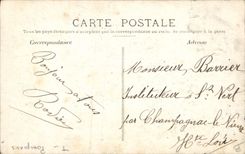 CARTE POSTALE
Tous les pays étrangers n'acceptent pas la correspondance au recto
Correspondance
Adresse
Bonjour à tous
Monsieur Barrier
Instituteur à St Vert
par Champagnac le Vieux
Hte Loire